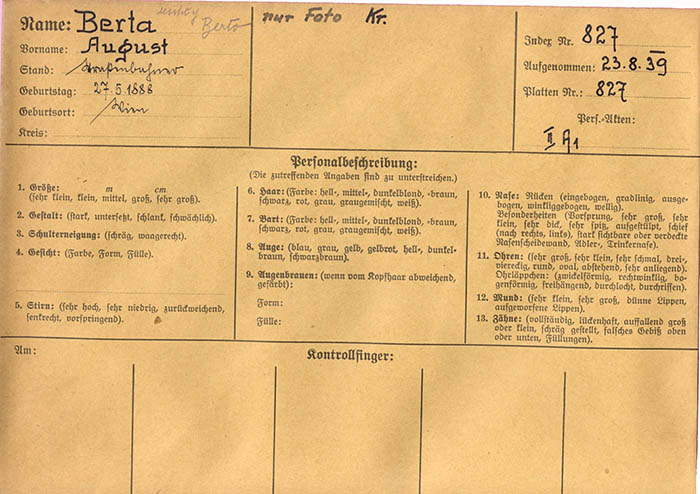 Name: Berta
richtig Berto
Vorname: August
Stand: Straßenbahner
Geburtstag: 27.5.1888
Geburtsort: Wien
Kreis:
nur Foto Kr.
Index Nr. 827
Aufgenommen: 23.8.39
Platten Nr.: 827
Pers.-Akten:
II A1
Personalbeschreibung:
(Die zutreffenden Angaben sind zu unterstreichen.)
1. Größe: m cm
(sehr klein, klein, mittel, groß, sehr groß).
2. Gestalt: (stark, untersetzt, schlank, schwächlich).
3. Schulterneigung: (schräg, waagerecht).
4. Gesicht: (Farbe, Form, Fülle).
5. Stirn: (sehr hoch, sehr niedrig, zurückweichend,
senkrecht, vorspringend).
6. Haar: (Farbe: hell-, mittel-, dunkelblond, -braun,
schwarz, rot, grau, graugemischt, weiß).
7. Bart: (Farbe: hell-, mittel-, dunkelblond, -braun,
schwarz, rot, grau, graugemischt, weiß).
8. Auge: (blau, grau, gelb, gelbrot, hell-, dunkel-
braun, schwarzbraun).
9. Augenbrauen: (wenn vom Kopfhaar abweichend,
gefärbt):
Form:
Fülle:
10. Nase: Rücken (eingebogen, gradlinig, ausge-
bogen, winkliggebogen, wellig).
Besonderheiten (Vorsprung, sehr groß, sehr
klein, sehr dick, sehr spitz, aufgestülpt, schief
(nach rechts, links), stark sichtbare oder verdeckte
Nasenscheidewand, Adler-, Trinkernase).
11. Ohren: (sehr groß, sehr klein, sehr schmal, drei-,
viereckig, rund, oval, abstehend, sehr anliegend).
Ohrläppchen: (zwickelförmig, rechtwinklig, bo-
genförmig, freihängend, durchlocht, durchrissen).
12. Mund: (sehr klein, sehr groß, dünne Lippen,
aufgeworfene Lippen).
13. Zähne: (vollständig, lückenhaft, auffallend groß
oder klein, schräg gestellt, falsches Gebiß oben
oder unten, Füllungen).
Am:
Kontrollfinger: